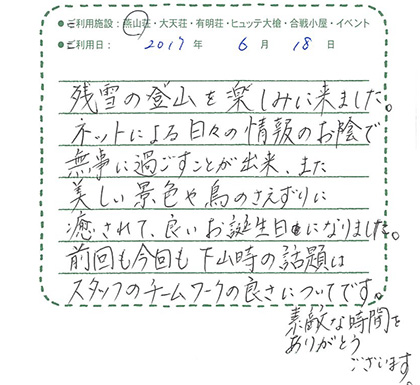 ●ご利用施設：燕山荘・大天荘・有明荘・ヒュッテ大槍・合戦小屋・イベント
●ご利用日： 2017 年 6 月 18 日
残雪の登山を楽しみに来ました。
ネットによる日々の情報のお陰で
無事に過ごすことが出来、また
美しい景色や鳥のさえずりに
癒されて、良いお誕生日になりました。
前回も今回も下山時の話題は
スタッフのチームワークの良さについてです。
素敵な時間を
ありがとう
ございます。